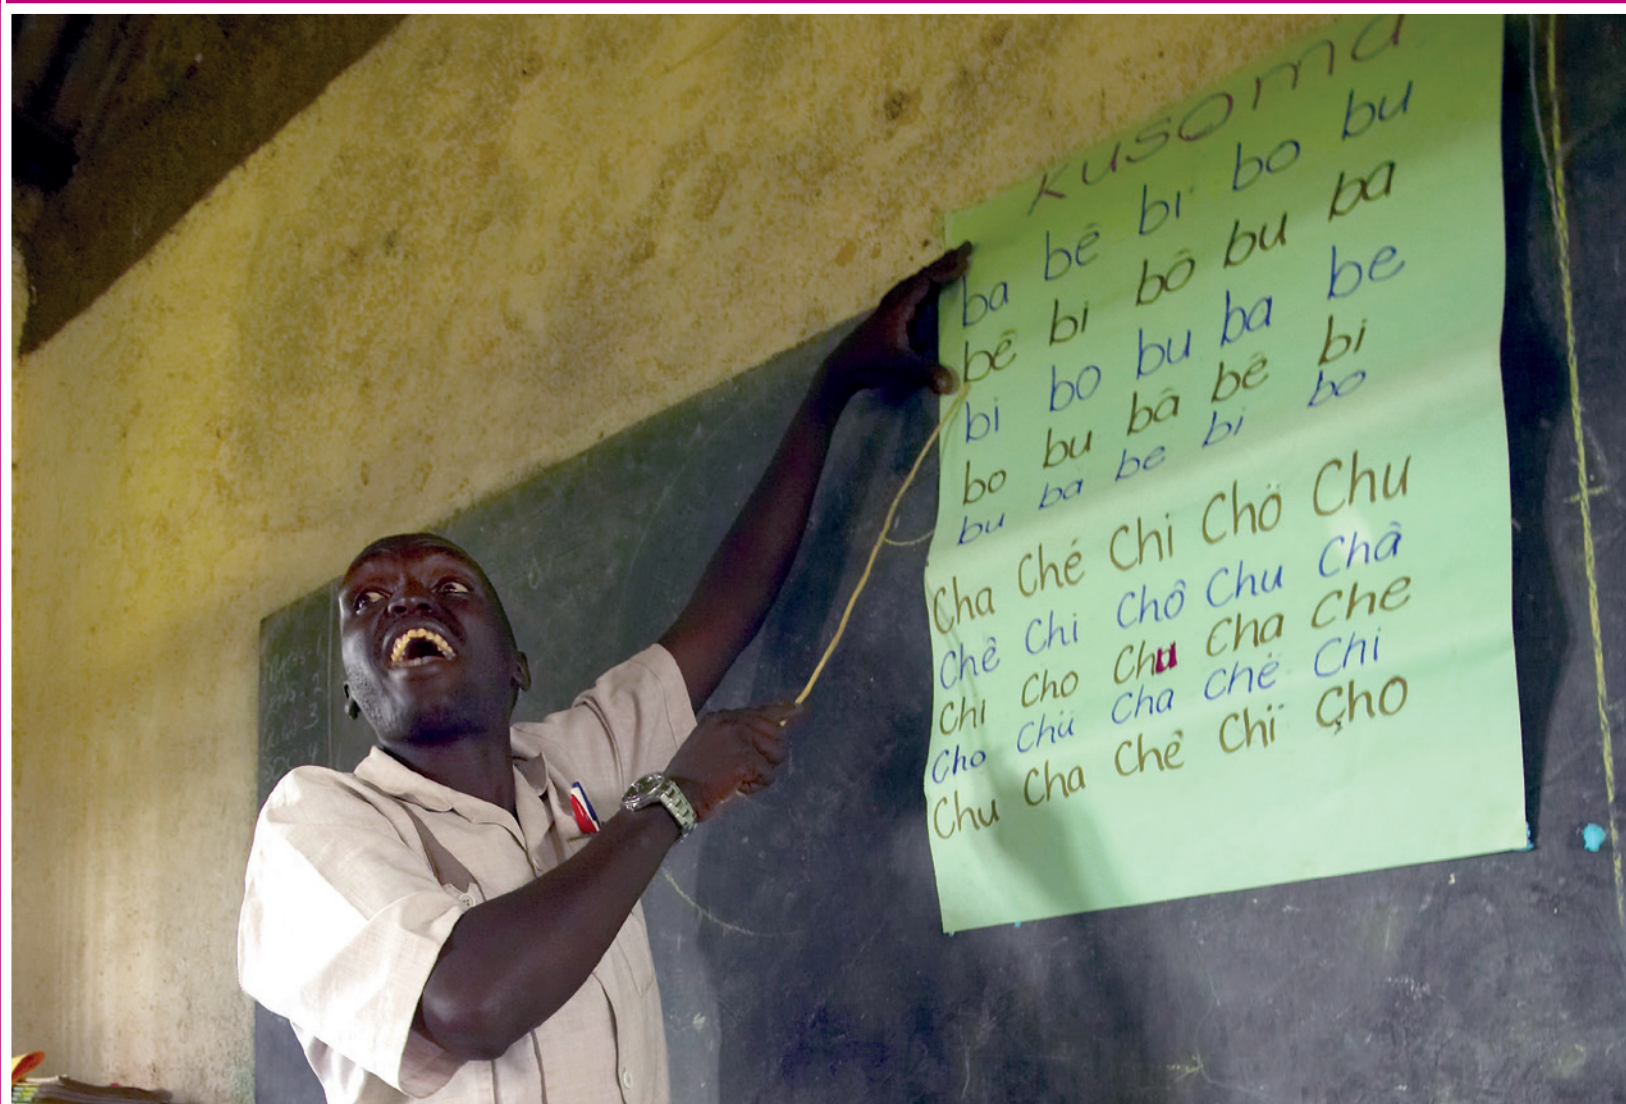 kusoma
ba bê bi bo bu
bê bi bô bu ba
bi bo bu ba be
bo bu bâ bê bi
bu ba be bi bo
Cha Ché Chi Chö Chu
Chê Chi Chô Chu Châ
Chi Cho Chu Cha Che
Cho Chü Cha Chë Chi
Chu Cha Chè Chï Çho